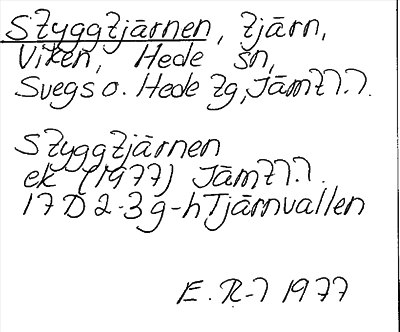 Styggtjärnen, tjärn,
Viken, Hede sn,
Svegs o. Hede tg, Jämtl.
Styggtjärnen
ek (1977) Jämtl.
17D 2-3 g-h Tjärnvallen
E. R-l 1977